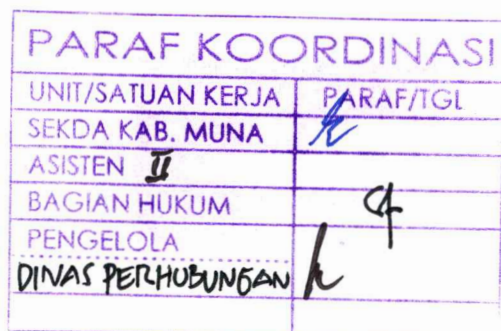 PARAF KOORDINASI
UNIT/SATUAN KERJA PARAF/TGL
SEKDA KAB. MUNA
ASISTEN II
BAGIAN HUKUM
PENGELOLA
DINAS PERHUBUNGAN